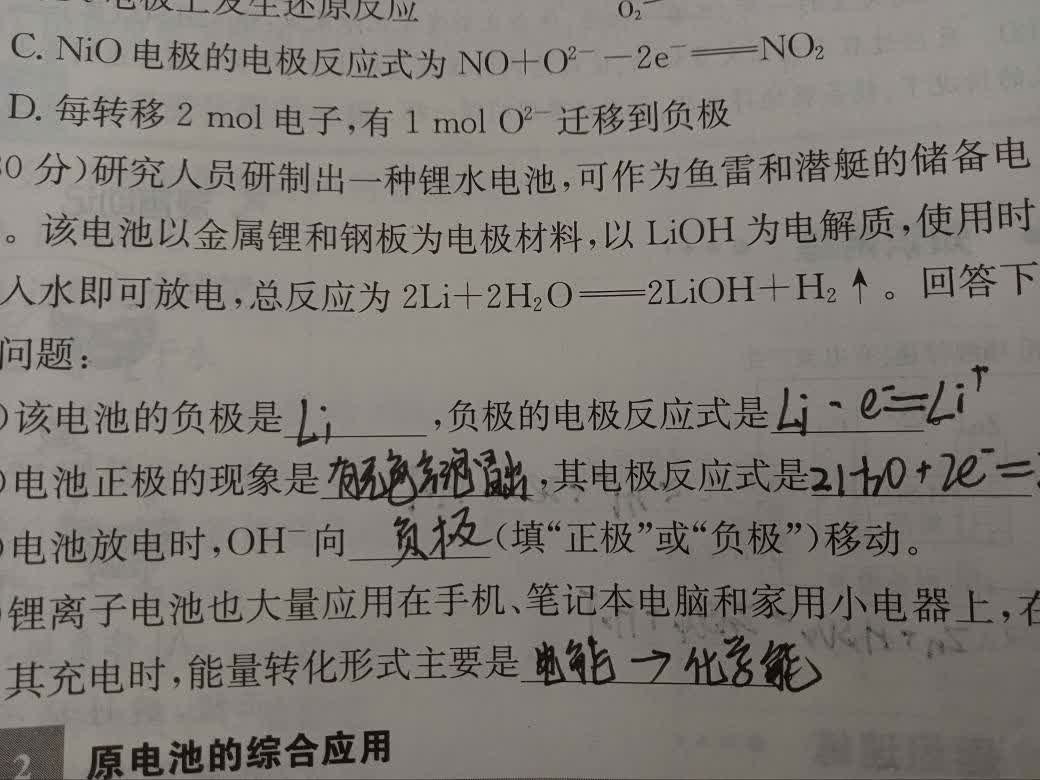 电极上发生还原反应
O₂⁻
C. NiO 电极的电极反应式为 NO+O²⁻－2e⁻══NO₂
D. 每转移 2 mol 电子,有 1 mol O²⁻ 迁移到负极
0 分)研究人员研制出一种锂水电池,可作为鱼雷和潜艇的储备电
。该电池以金属锂和钢板为电极材料,以 LiOH 为电解质,使用时
入水即可放电,总反应为 2Li+2H₂O══2LiOH+H₂↑。回答下
问题:
)该电池的负极是 Li ,负极的电极反应式是 Li - e⁻=Li⁺。
)电池正极的现象是 有无色气泡冒出 ,其电极反应式是 2H₂O+2e⁻=
)电池放电时,OH⁻ 向 负极 (填“正极”或“负极”)移动。
锂离子电池也大量应用在手机、笔记本电脑和家用小电器上,在
其充电时,能量转化形式主要是 电能→化学能
2 原电池的综合应用